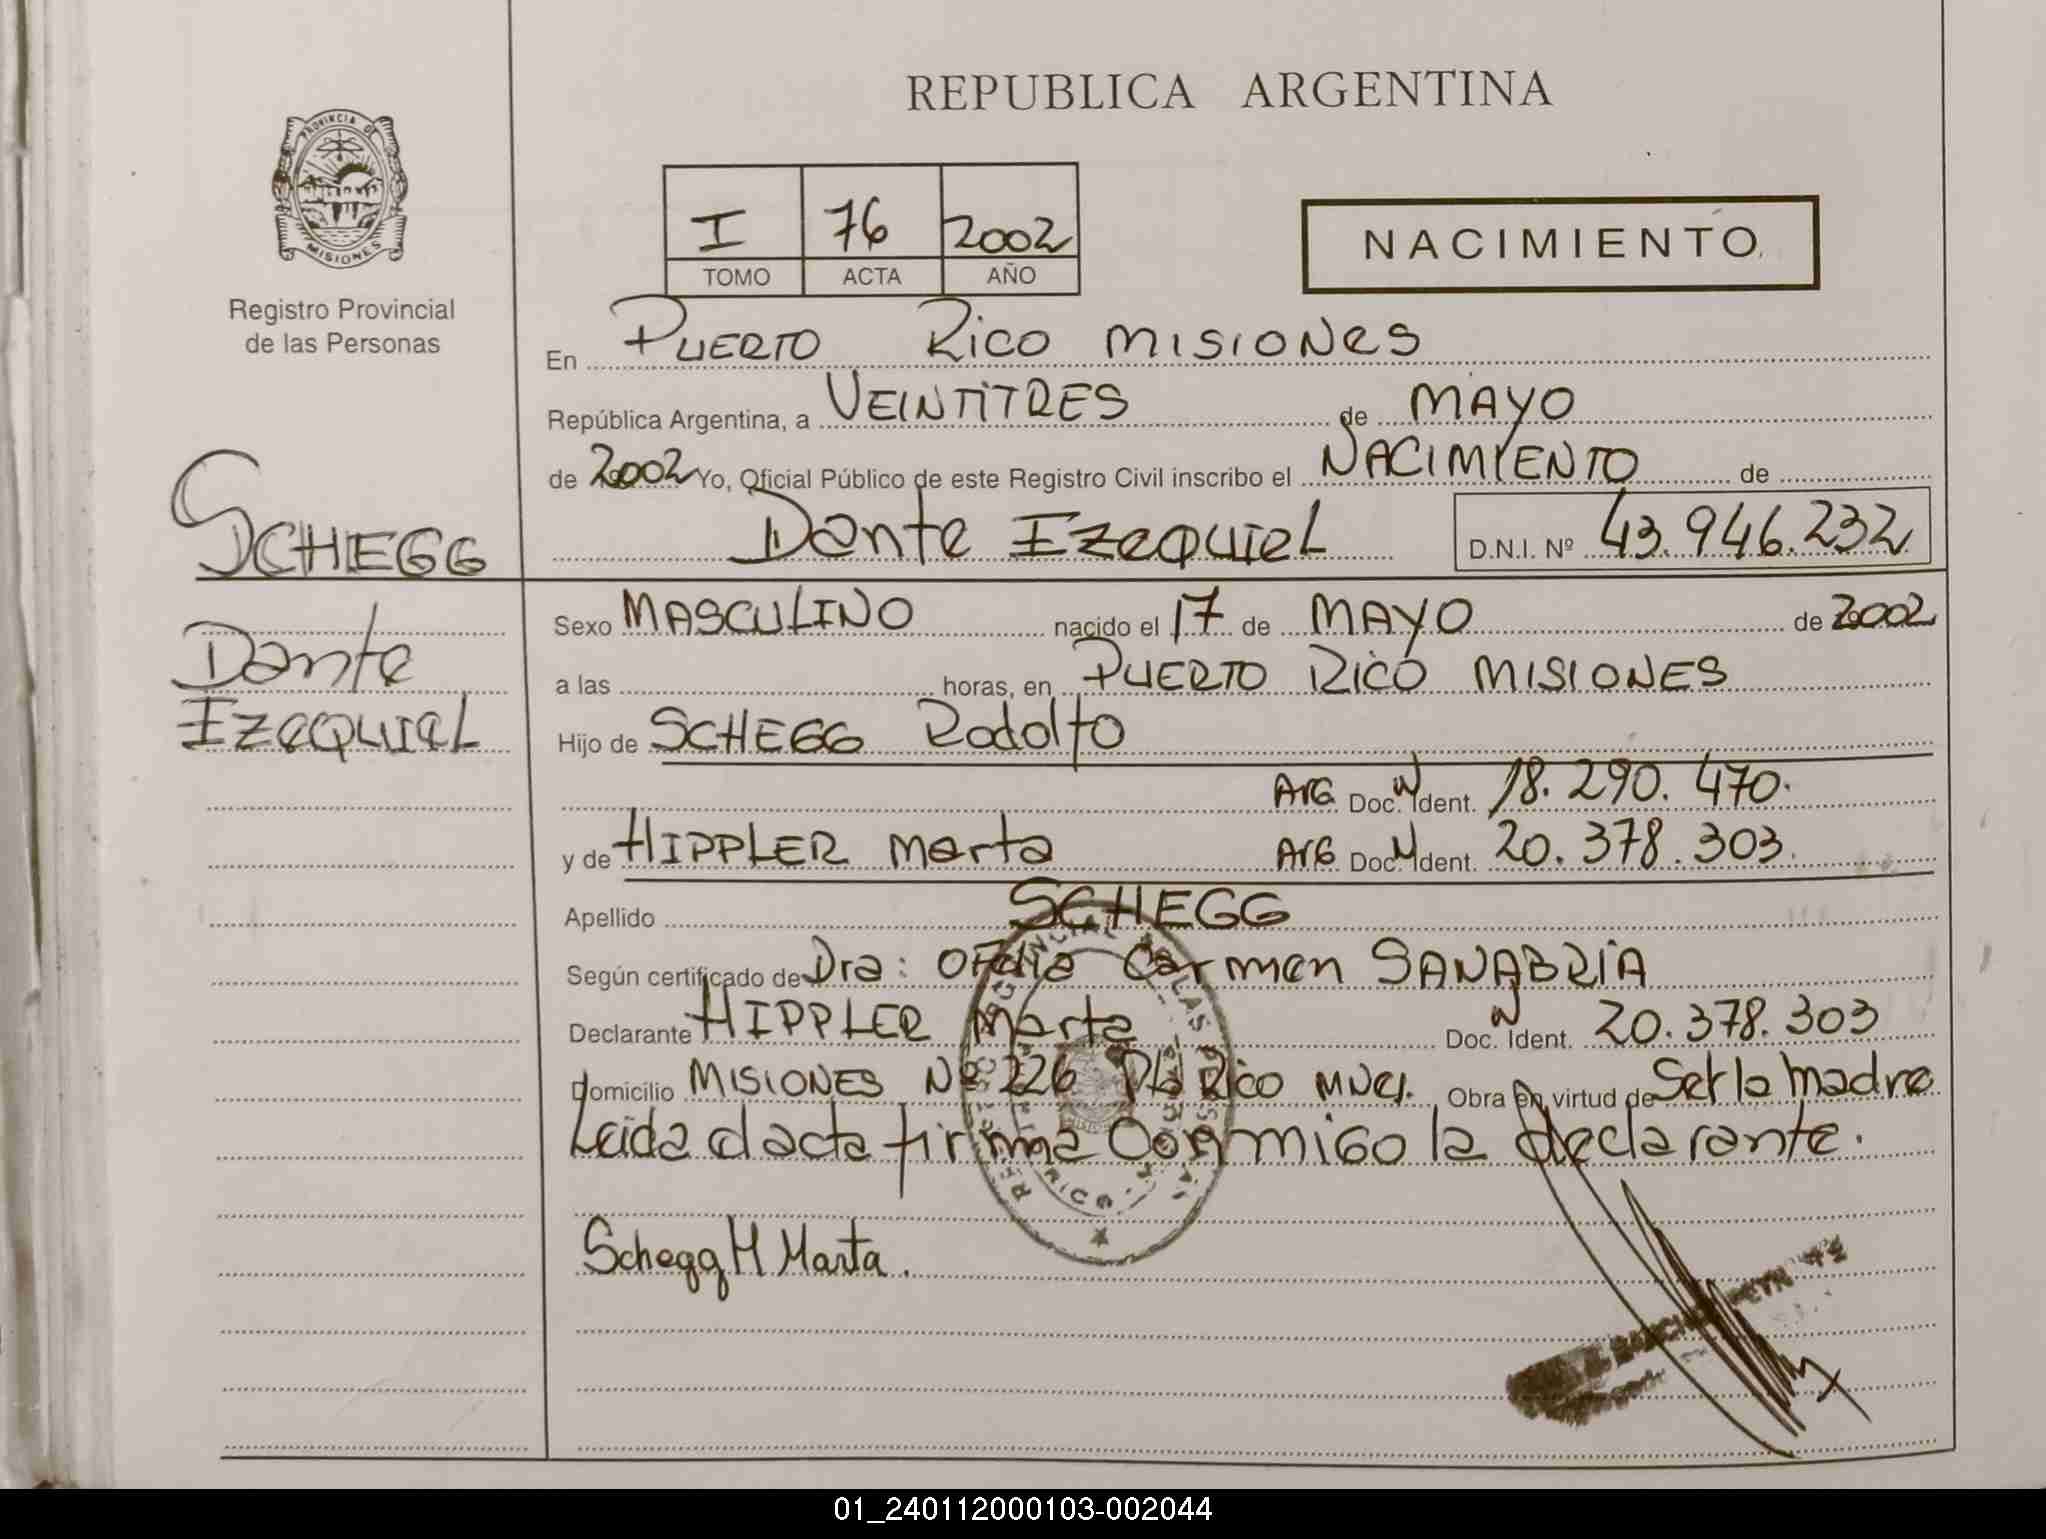 REPUBLICA ARGENTINA
PROVINCIA DE
MISIONES
Registro Provincial
de las Personas
I 76 2002
TOMO ACTA AÑO
NACIMIENTO
En PUERTO RICO MISIONES
República Argentina, a VEINTITRES de MAYO
de 2002 Yo, Oficial Público de este Registro Civil inscribo el NACIMIENTO de
Dante EzequieL D.N.I. Nº 43.946.232
SCHEGG
Dante
EzequieL
Sexo MASCULINO nacido el 17 de MAYO de 2002
a las horas, en PUERTO RICO MISIONES
Hijo de SCHEGG Rodolfo
ArG Doc. Ident. 18.290.470.
y de HIPPLER Marta ArG Doc. Ident. 20.378.303.
Apellido SCHEGG
Según certificado de Dra: OFelia Carmen SANABRIA
Declarante HIPPLER Marta Doc. Ident. 20.378.303
Domicilio MISIONES Nº 226 Pto Rico MNes. Obra en virtud de Ser la madre
Leida el acta firma Conmigo la declarante.
Schegg H Marta.
01_240112000103-002044